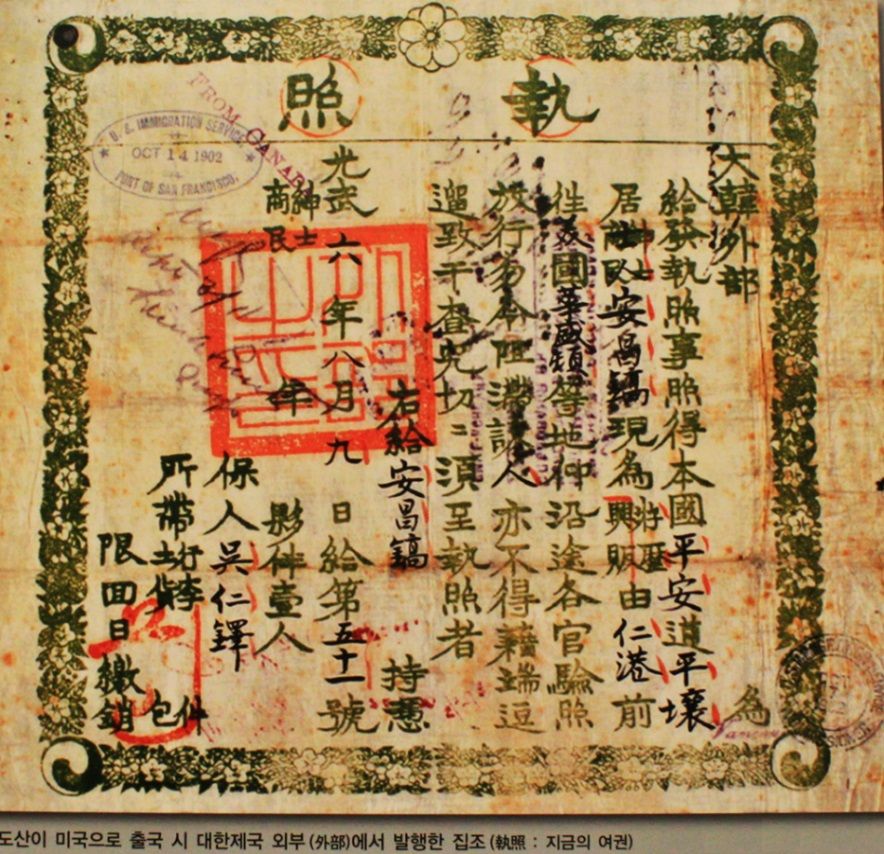 執照
大韓外部 為
給發執照事照得本國平安道平壤
居紳士商民安昌鎬現為游歷興販由仁港前
往美國華盛頓等地仰沿途各官驗照
放行勿令阻滯該人亦不得藉端逗
遛致干查究切〻須至執照者
右給安昌鎬 持憑
光武六年八月九日給第五十一號
紳士商民 年 影件壹人
保人吳仁鐸
所帶行李土貨 件包
限回日繳銷
FROM CANADA
U. S. IMMIGRATION SERVICE
OCT 14 1902
PORT OF SAN FRANCISCO.
도산이 미국으로 출국 시 대한제국 외부(外部)에서 발행한 집조(執照 : 지금의 여권)